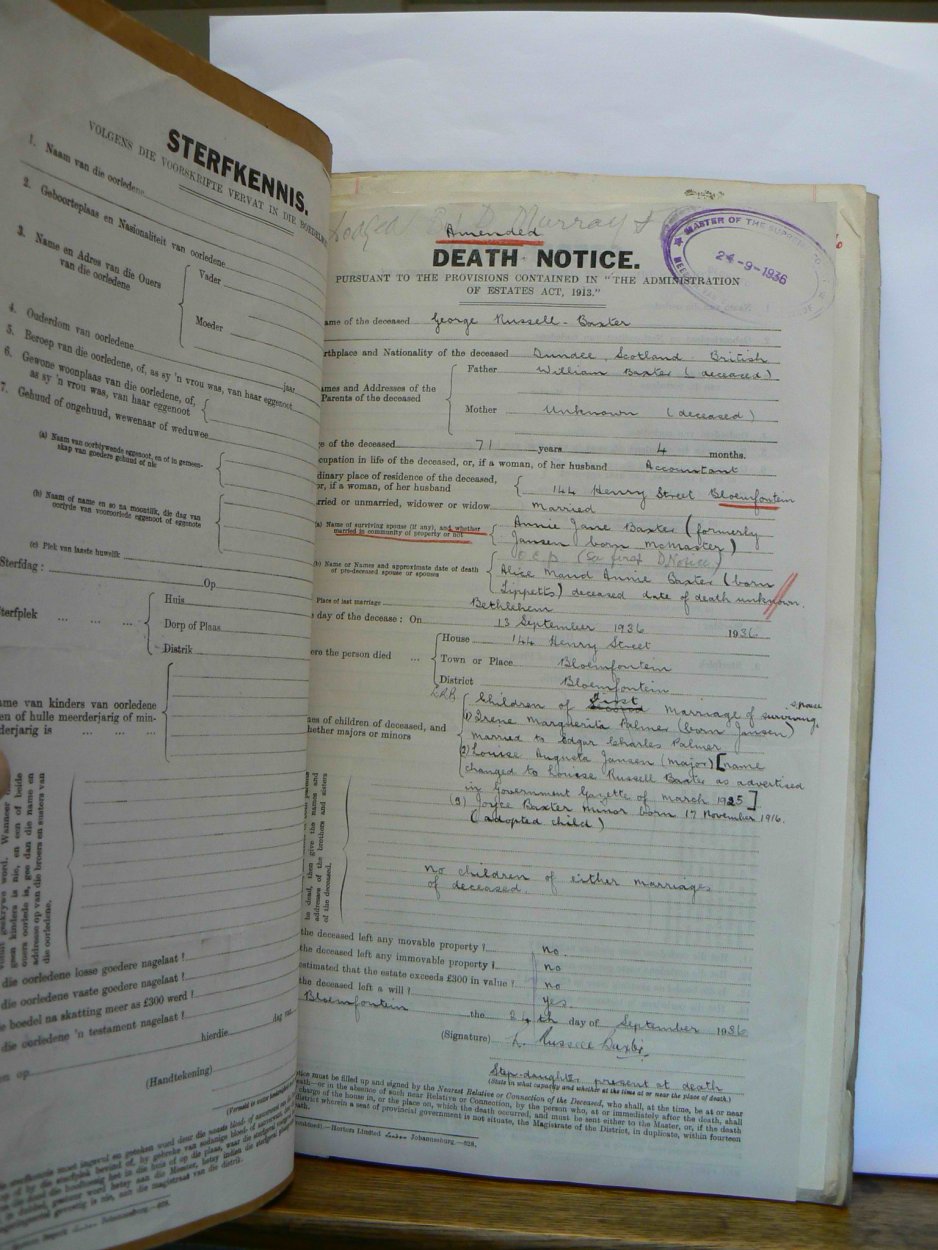 STERFKENNIS.
VOLGENS DIE VOORSKRIFTE VERVAT IN DIE
1. Naam van die oorledene
2. Geboorteplaas en Nasionaliteit van oorledene
3. Name en Adres van die Ouers
van die oorledene
Vader
Moeder
4. Ouderdom van oorledene
jaar
5. Beroep van die oorledene, of, as sy 'n vrou was, van haar eggenoot
6. Gewone woonplaas van die oorledene, of,
as sy 'n vrou was, van haar eggenoot
7. Gehuud of ongehuud, wewenaar of weduwee
(a) Naam van oorblywende eggenoot, en of in gemeen-
skap van goedere gehuud of nie
(b) Naam of name en so na moontlik, die dag van
oorlyde van vooroorlede eggenoot of eggenote
(c) Plek van laaste huwelik
Sterfdag :
Op
Sterfplek
Huis
Dorp of Plaas
Distrik
name van kinders van oorledene
en of hulle meerderjarig of min-
derjarig is
die oorledene losse goedere nagelaat ?
die oorledene vaste goedere nagelaat ?
boedel na skatting meer as £300 werd ?
die oorledene 'n testament nagelaat ?
op
hierdie
dag van
(Handtekening)
Lodged by D. Murray &
Amended
DEATH NOTICE.
MASTER OF THE SUPREME
24-9-1936
PURSUANT TO THE PROVISIONS CONTAINED IN "THE ADMINISTRATION
OF ESTATES ACT, 1913."
ame of the deceased George Russell-Baxter
rthplace and Nationality of the deceased Dundee, Scotland. British
ames and Addresses of the
Parents of the deceased
Father William Baxter (deceased)
Mother Unknown (deceased)
ge of the deceased 71 years 4 months.
cupation in life of the deceased, or, if a woman, of her husband Accountant
dinary place of residence of the deceased,
or, if a woman, of her husband 144 Henry Street Bloemfontein
rried or unmarried, widower or widow Married
(a) Name of surviving spouse (if any), and whether
married in community of property or not
Annie Jane Baxter (formerly
Jansen born McMaster)
(See first D.Notice)
(b) Name or Names and approximate date of death
of pre-deceased spouse or spouses
Alice Maud Annie Baxter (born
Tippetts) deceased date of death unknown.
Place of last marriage Bethlehem
day of the decease : On 13 September 1936 1936
ere the person died ...
House 144 Henry Street
Town or Place Bloemfontein
District Bloemfontein
es of children of deceased, and
hether majors or minors
Children of First Marriage of surviving spouse
1) Irene Marguerita Palmer (born Jansen)
married to Edgar Charles Palmer
(2) Louise Augusta Jansen (major) [name
changed to Louise Russell Baxter as advertised
in Government Gazette of March 1925]
(3) Joyce Baxter minor born 17 November 1916.
(adopted child)
be dead, then give the names and
addresses of the brothers and sisters
of the deceased.
No children of either marriages
of deceased.
the deceased left any movable property ? no.
the deceased left any immovable property ? no
estimated that the estate exceeds £300 in value ? no
the deceased left a will ? yes
Bloemfontein the 24th day of September 1936
(Signature) L. Russell Baxter
Step-daughter, present at death
(State in what capacity and whether at the time at or near the place of death.)
otice must be filled up and signed by the Nearest Relative or Connection of the Deceased, who shall, at the time, be at or near
death—or in the absence of such near Relative or Connection, by the person who, at or immediately after the death, shall
charge of the house in, or the place on, which the death occurred, and must be sent either to the Master, or, if the death
district wherein a seat of provincial government is not situate, the Magistrate of the District, in duplicate, within fourteen
death.
Hortors Limited Johannesburg.—628.